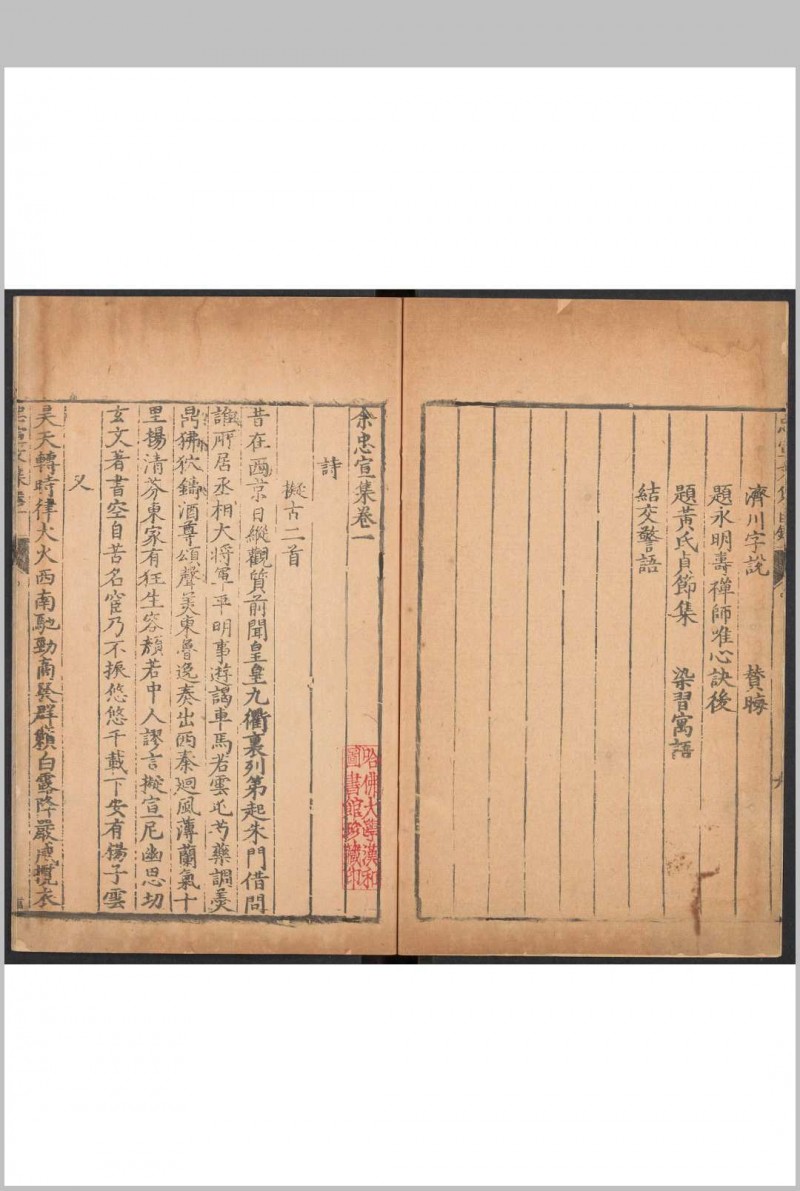 濟川字說　贊晦
題永明壽禪師唯心訣後
題黃氏貞節集　染習寓語
結交警語
余忠宣集卷一
詩
擬古二首
昔在西京日縱觀質前聞皇皇九衢裏列第起朱門借問
誰所居丞相大將軍平明事遊謁車馬若雲屯芍藥調羹
鼎狒狄鑄酒尊頌聲美東魯逸奏出西秦廻風薄蘭氣十
里楊清芬東家有狂生容顏若中人謬言擬宣尼幽思切
玄文著書空自苦名宦乃不振悠悠千載下安有揚子雲
又
昊天轉時律大火西南馳勁商發群籟白露降嚴威攬衣
哈佛大學漢和
圖書館珍藏印